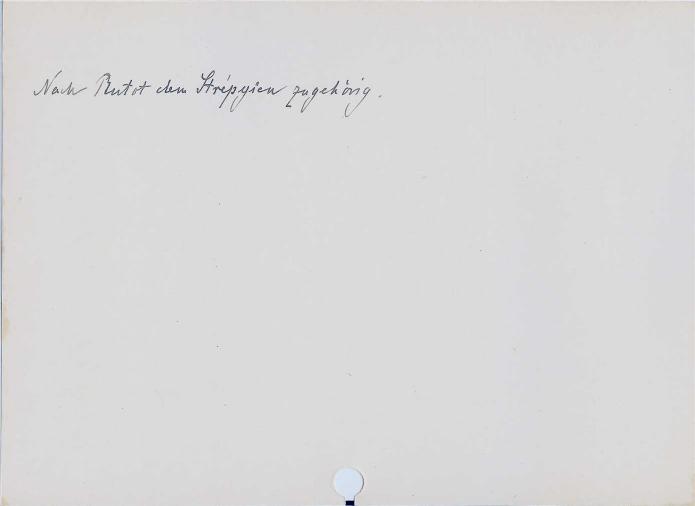 Nach Rutot dem Strépyien zugehörig.